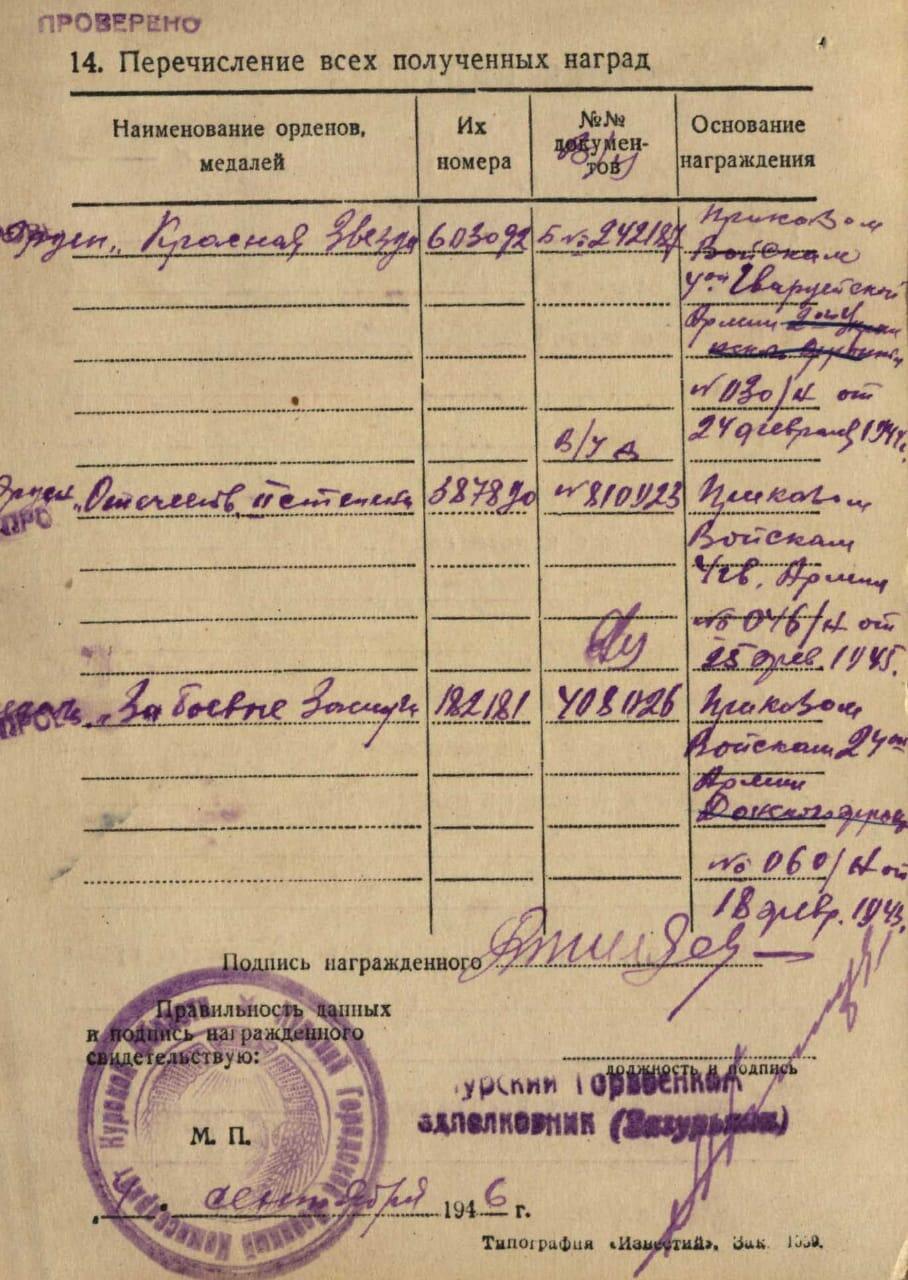 ПРОВЕРЕНО
14. Перечисление всех полученных наград
Наименование орденов, медалей
Их номера
№№ документов
Основание награждения
в/у
Орден „Красная Звезда 603092 Б №242187 Приказом
Войскам
4ой Гвардейской
Армии
№ 030/н от
24 февраля 1944г.
в/у
Орден „Отечеств. II степени 387890 №810923 Приказом
ПРО
Войскам
4 гв. Армии
№ 046/н от
25 фев. 1945.
„За боевые Заслуги 182181 408026 Приказом
ПРОВ
Войскам 24ой
Армии
Донского
№ 060/н от
18 февр. 1943.
Подпись награжденного
Правильность данных
и подпись награжденного
свидетельствую:
должность и подпись
урский Горвоенком
одполковник
М. П.
4 сентября 1946 г.
Типография «Известий». Зак.